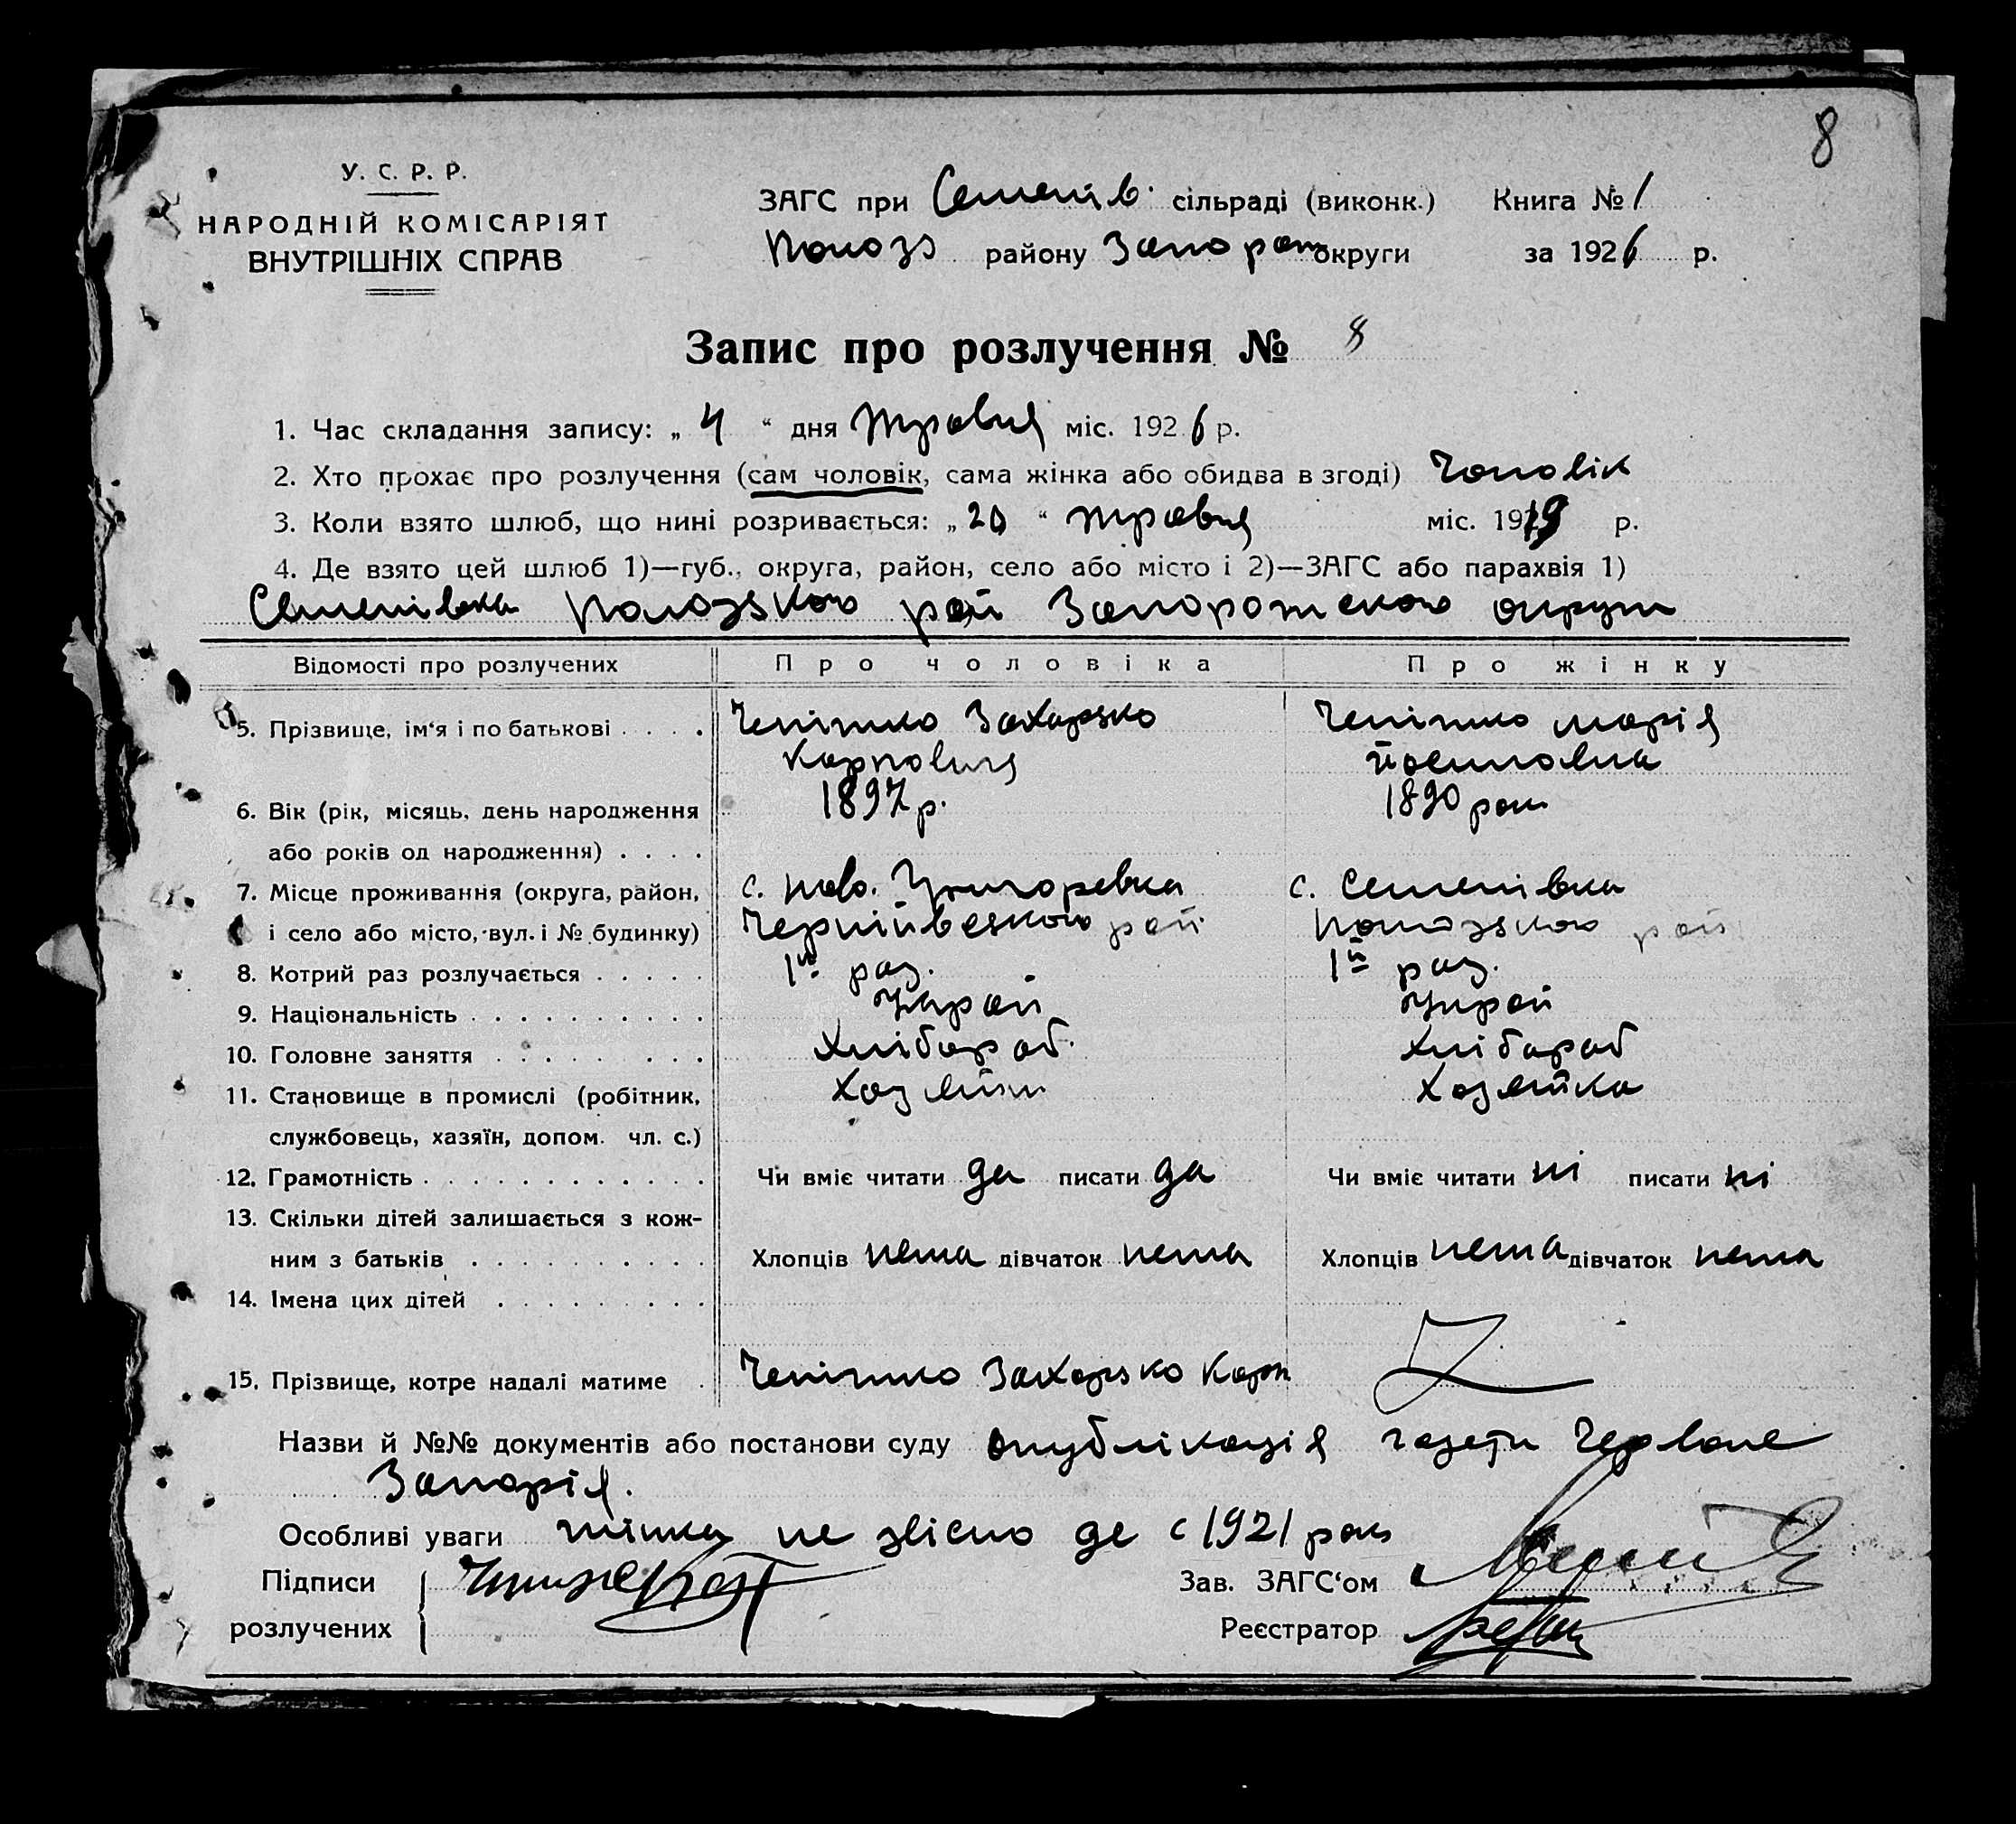 8
У. С. Р. Р.
НАРОДНІЙ КОМІСАРІЯТ
ВНУТРІШНІХ СПРАВ
ЗАГС при Семенів. сільраді (виконк.) Книга № 1
Пологз району Запорож округи за 1926 р.
Запис про розлучення № 8
1. Час складання запису: „ 4 “ дня травня міс. 1926 р.
2. Хто прохає про розлучення (сам чоловік, сама жінка або обидва в згоді) Чоловік
3. Коли взято шлюб, що нині розривається: „ 20 “ травня міс. 1919 р.
4. Де взято цей шлюб 1)—губ., округа, район, село або місто і 2)—ЗАГС або парахвія 1)
Семенівка Пологзского рай Запорожского округи
Відомості про розлучених Про чоловіка Про жінку
5. Прізвище, ім‘я і по батькові Чепішко Захарько Чепішко Марія
Карпович
6. Вік (рік, місяць, день народження 1897 р. 1890 рок
або років од народження)
7. Місце проживання (округа, район, с. Ново. Григоревка с. Семенівка
і село або місто, вул. і № будинку) рай Пологзского рай
8. Котрий раз розлучається 1й раз. 1й раз.
9. Національність Украй Украй
10. Головне заняття Хлібораб. Хлібораб
11. Становище в промислі (робітник, Хозяїн Хозяйка
службовець, хазяїн, допом. чл. с.)
12. Грамотність Чи вміє читати да писати да Чи вміє читати ні писати ні
13. Скільки дітей залишається з кож-
ним з батьків Хлопців нема дівчаток нема Хлопців нема дівчаток нема
14. Імена цих дітей
15. Прізвище, котре надалі матиме Чепішко Захарько Карп
Назви й №№ документів або постанови суду опублікація газети Червоне
Запорія.
Особливі уваги жінка не звісно де с 1921 рок
Підписи Зав. ЗАГС‘ом
розлучених Реєстратор